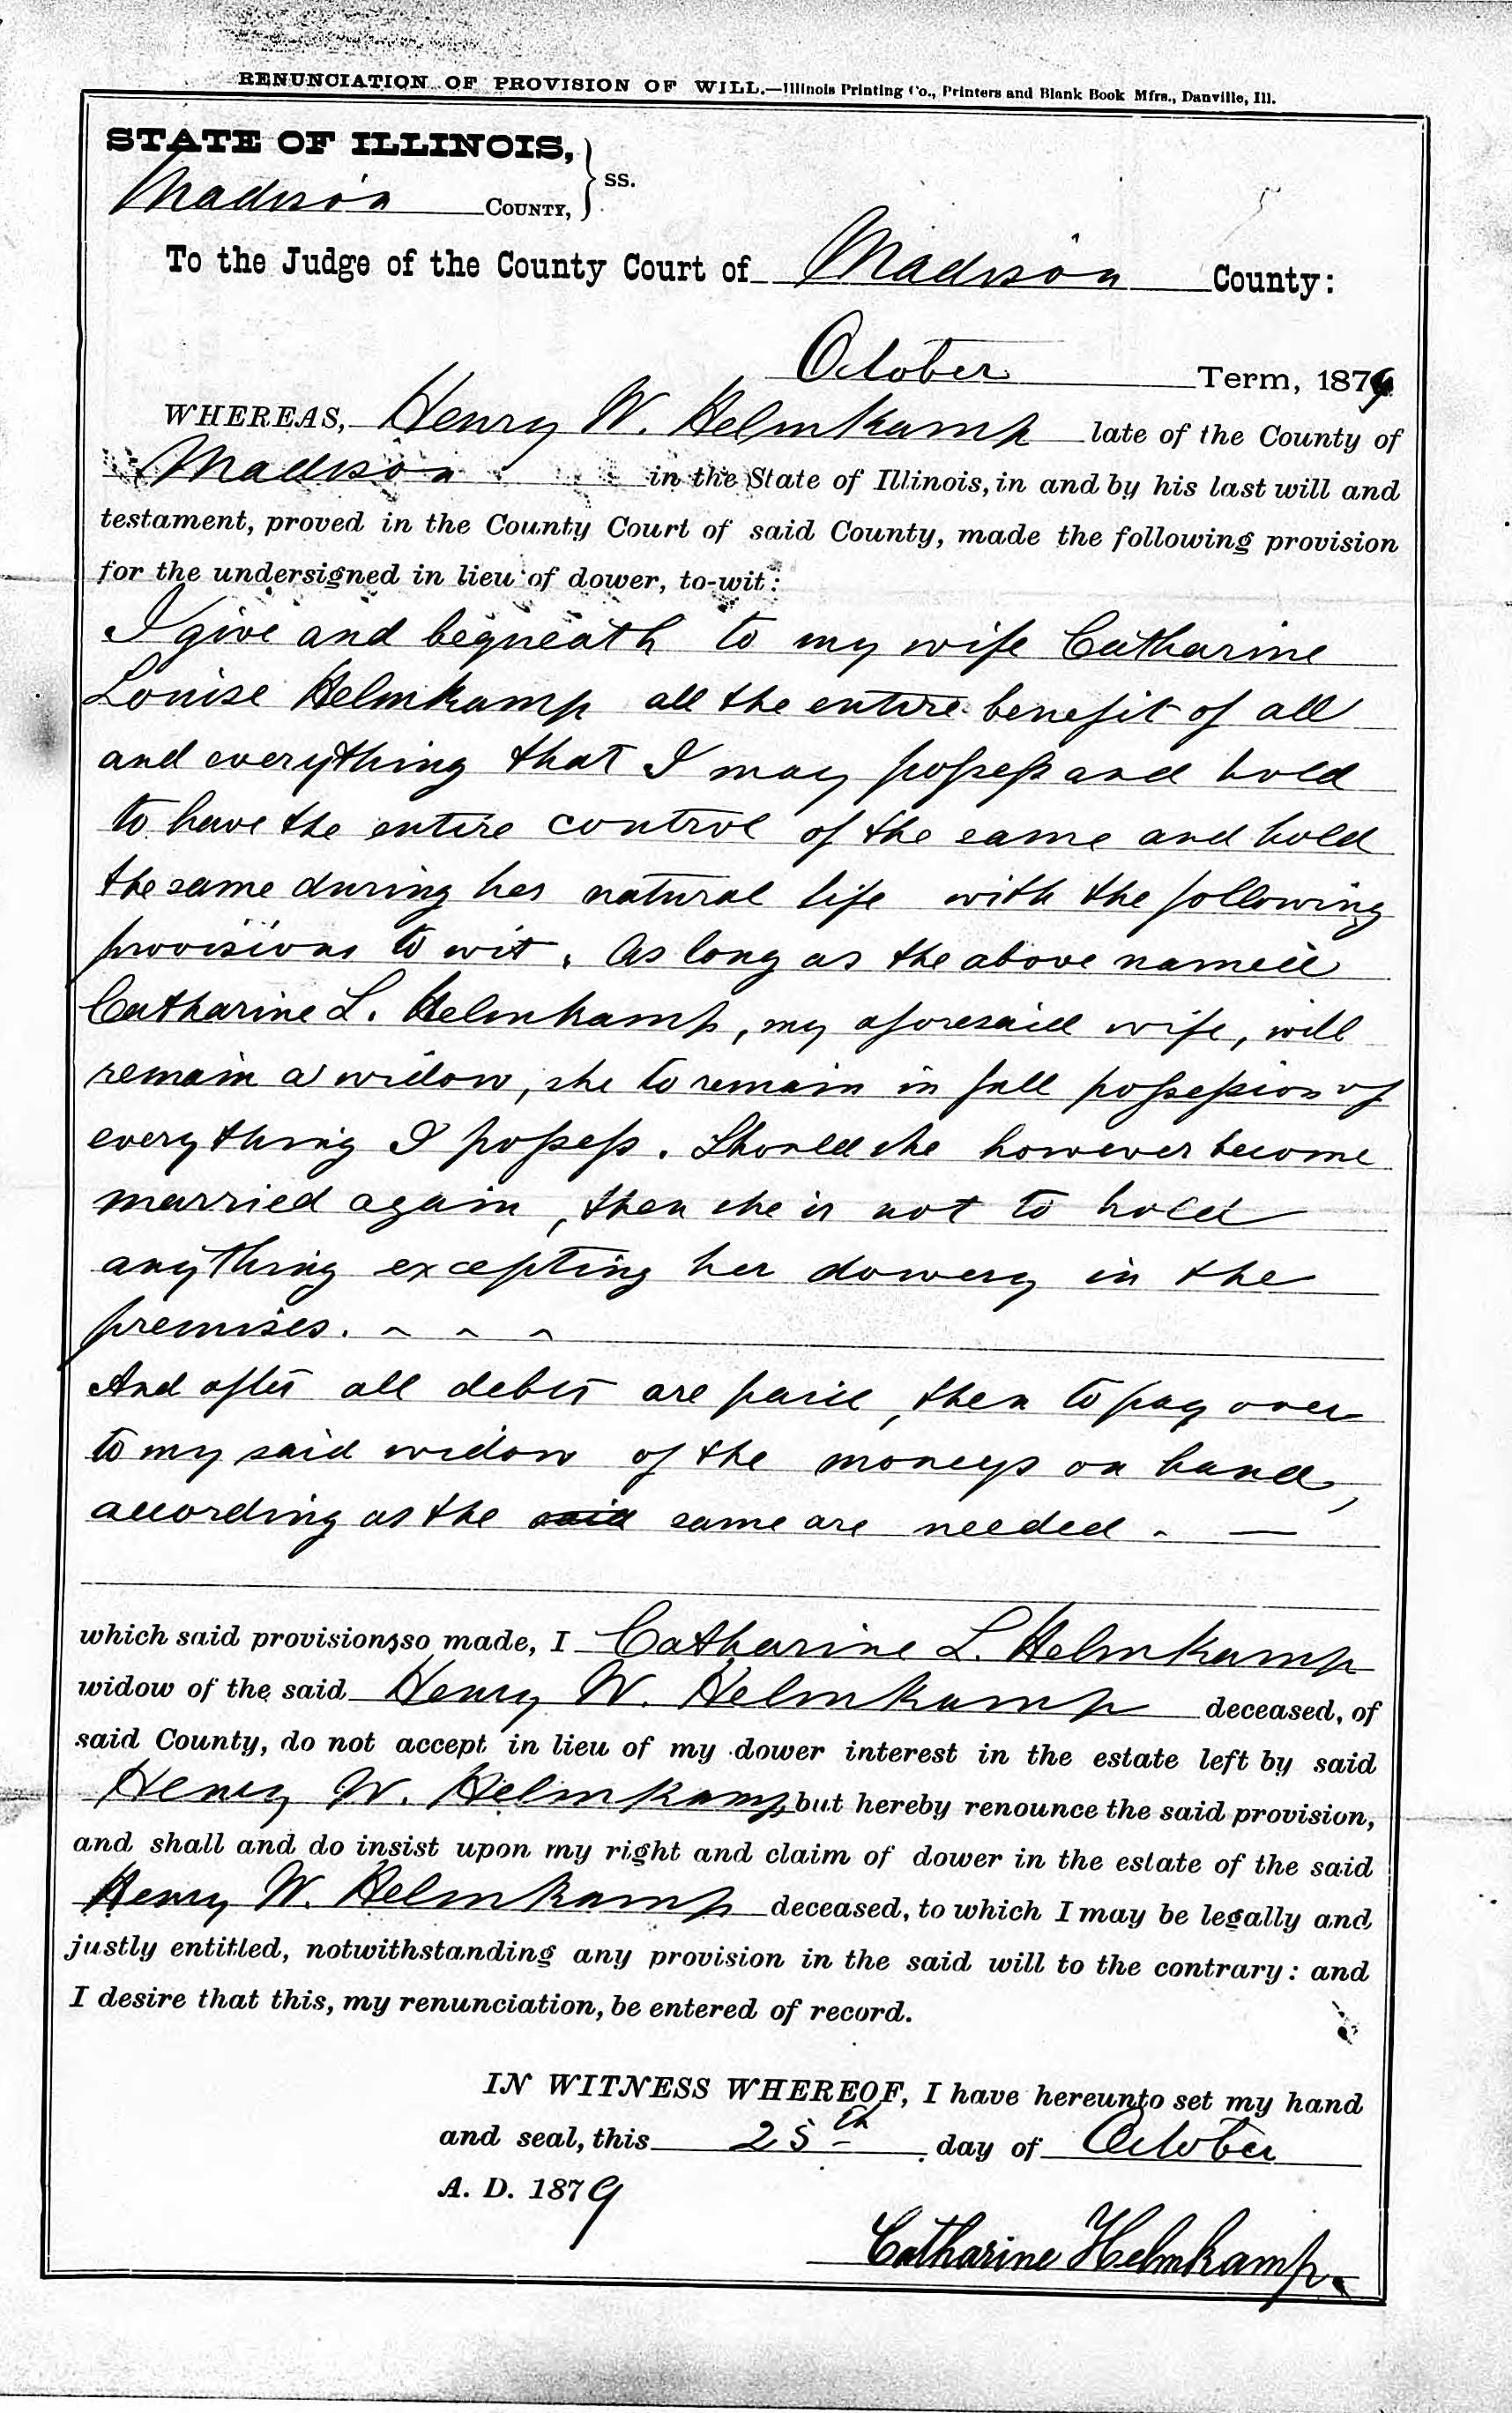 RENUNCIATION OF PROVISION OF WILL.—Illinois Printing Co., Printers and Blank Book Mfrs., Danville, Ill.
STATE OF ILLINOIS,
Madison COUNTY, } SS.
To the Judge of the County Court of Madison County:
October Term, 1879
WHEREAS, Henry W. Helmkamp late of the County of
Madison in the State of Illinois, in and by his last will and
testament, proved in the County Court of said County, made the following provision
for the undersigned in lieu of dower, to-wit:
I give and bequeath to my wife Catharine
Louise Helmkamp all the entire benefit of all
and everything that I may possess and hold
to have the entire control of the same and hold
the same during her natural life with the following
provisions to wit. As long as the above named
Catharine L. Helmkamp, my aforesaid wife, will
remain a widow, she to remain in full possession of
everything I possess. Should she however become
married again, then she is not to hold
anything excepting her dowery in the
premises. ~ ~ ~
And after all debts are paid, then to pay over
to my said widow of the moneys on hand,
according as the said same are needed. —
which said provisions so made, I Catharine L. Helmkamp
widow of the said Henry W. Helmkamp deceased, of
said County, do not accept in lieu of my dower interest in the estate left by said
Henry W. Helmkamp but hereby renounce the said provision,
and shall and do insist upon my right and claim of dower in the estate of the said
Henry W. Helmkamp deceased, to which I may be legally and
justly entitled, notwithstanding any provision in the said will to the contrary: and
I desire that this, my renunciation, be entered of record.
IN WITNESS WHEREOF, I have hereunto set my hand
and seal, this 25th day of October
A. D. 1879
Catharine Helmkamp.